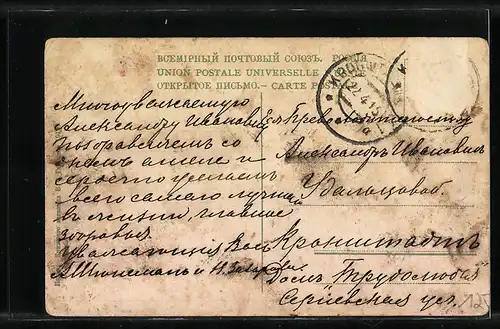 ВСЕМІРНЫЙ ПОЧТОВЫЙ СОЮЗЪ. РОССІЯ
UNION POSTALE UNIVERSELLE
ОТКРЫТОЕ ПИСЬМО.— CARTE POSTALE
Многоуважаемую
Александру Ивановну
Поздравляемъ со
днемъ ангела и
сердечно желаемъ
всего самаго лучшаго
въ жизни, главное
здоровья.
Уважающіе Васъ
Превосходительству
Александръ Ивановнѣ
Вальцовой.
Кронштадтъ
Домъ Трудолюбія
Сергіевская ул.
22 4 15
125